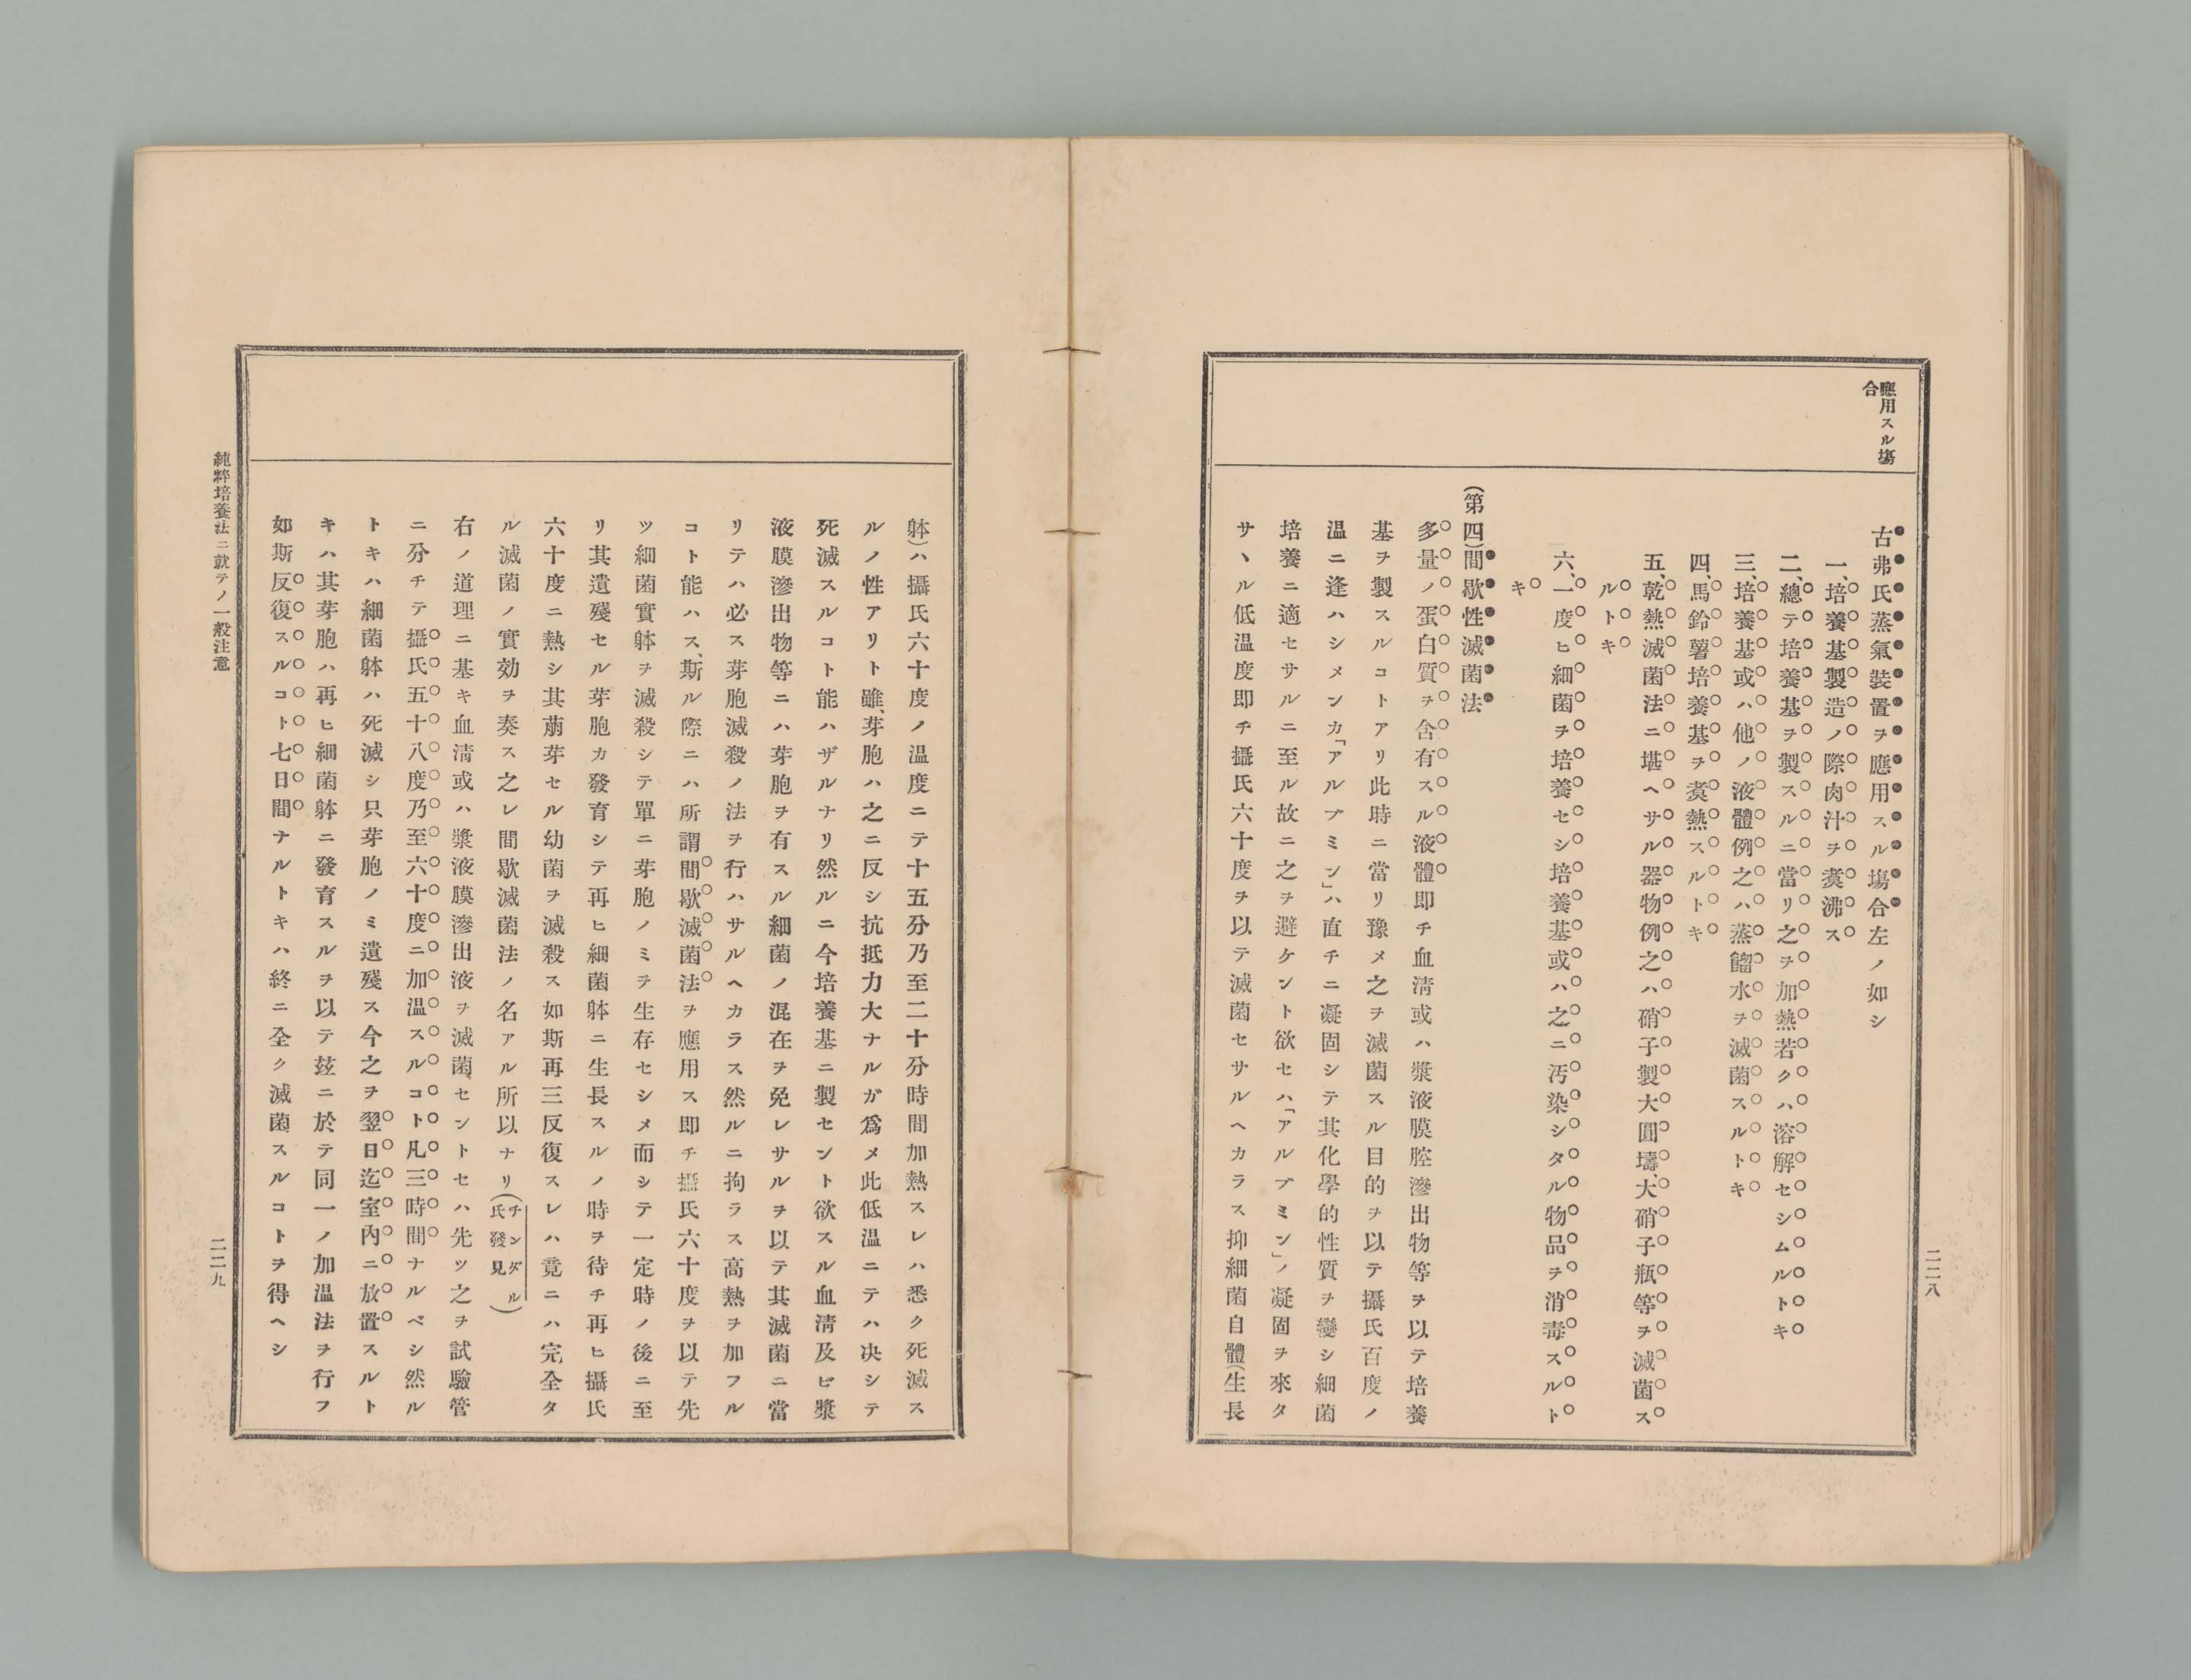 應用スル塲
合
古弗氏蒸氣裝置ヲ應用スル塲合左ノ如シ
一、培養基製造ノ際肉汁ヲ煑沸ス
二、總テ培養基ヲ製スルニ當リ之ヲ加熱若クハ溶解セシムルトキ
三、培養基或ハ他ノ液體例之ハ蒸餾水ヲ滅菌スルトキ
四、馬鈴薯培養基ヲ煑熱スルトキ
五、乾熱滅菌法ニ堪ヘサル器物例之ハ硝子製大圓壔、大硝子瓶等ヲ滅菌ス
ルトキ
六、一度ヒ細菌ヲ培養セシ培養基或ハ之ニ汚染シタル物品ヲ消毒スルト
キ
(第四)間歇性滅菌法
多量ノ蛋白質ヲ含有スル液體即チ血淸或ハ漿液膜腔滲出物等ヲ以テ培養
基ヲ製スルコトアリ此時ニ當リ豫メ之ヲ滅菌スル目的ヲ以テ攝氏百度ノ
温ニ逢ハシメンカ「アルブミン」ハ直チニ凝固シテ其化學的性質ヲ變シ細菌
培養ニ適セサルニ至ル故ニ之ヲ避ケント欲セハ「アルブミン」ノ凝固ヲ來タ
サヽル低温度即チ攝氏六十度ヲ以テ滅菌セサルヘカラス抑細菌自體(生長
二二八
躰)ハ攝氏六十度ノ温度ニテ十五分乃至二十分時間加熱スレハ悉ク死滅ス
ルノ性アリト雖、芽胞ハ之ニ反シ抗抵力大ナルガ爲メ此低温ニテハ决シテ
死滅スルコト能ハザルナリ然ルニ今培養基ニ製セント欲スル血淸及ビ漿
液膜滲出物等ニハ芽胞ヲ有スル細菌ノ混在ヲ免レサルヲ以テ其滅菌ニ當
リテハ必ス芽胞滅殺ノ法ヲ行ハサルヘカラス然ルニ拘ラス高熱ヲ加フル
コト能ハス、斯ル際ニハ所謂間歇滅菌法ヲ應用ス即チ攝氏六十度ヲ以テ先
ツ細菌實躰ヲ滅殺シテ單ニ芽胞ノミヲ生存セシメ而シテ一定時ノ後ニ至
リ其遺殘セル芽胞カ發育シテ再ヒ細菌躰ニ生長スルノ時ヲ待チ再ヒ攝氏
六十度ニ熱シ其萠芽セル幼菌ヲ滅殺ス如斯再三反復スレハ竟ニハ完全タ
ル滅菌ノ實効ヲ奏ス之レ間歇滅菌法ノ名アル所以ナリ(チンダル氏發見)
右ノ道理ニ基キ血淸或ハ漿液膜滲出液ヲ滅菌セントセハ先ツ之ヲ試驗管
ニ分チテ攝氏五十八度乃至六十度ニ加温スルコト凡三時間ナルベシ然ル
トキハ細菌躰ハ死滅シ只芽胞ノミ遺殘ス今之ヲ翌日迄室內ニ放置スルト
キハ其芽胞ハ再ヒ細菌躰ニ發育スルヲ以テ玆ニ於テ同一ノ加温法ヲ行フ
如斯反復スルコト七日間ナルトキハ終ニ全ク滅菌スルコトヲ得ヘシ
純粹培養法ニ就テノ一般注意
二二九